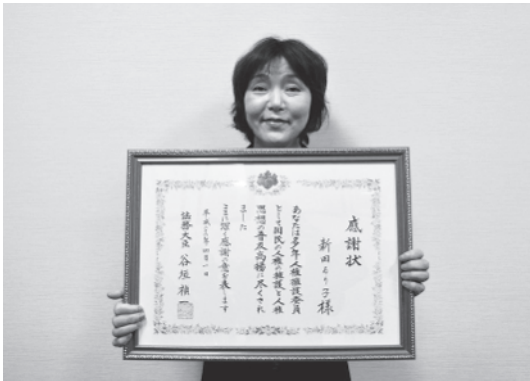 感謝状
新田るり子様
あなたは多年人権擁護委員
として国民の人権の擁護と人権
思想の普及高揚に尽くされ
ました
ここに深く感謝の意を表します
平成二六年四月一日
法務大臣 谷垣禎一